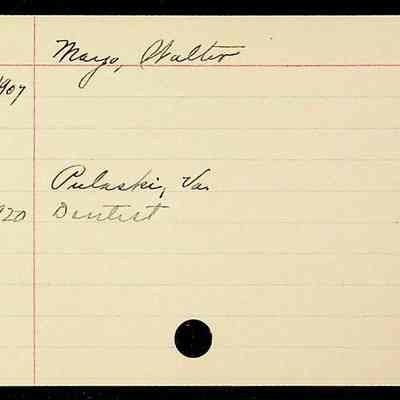 Mayo, Walter
1907
Pulaski, Va.
1920 Dentist